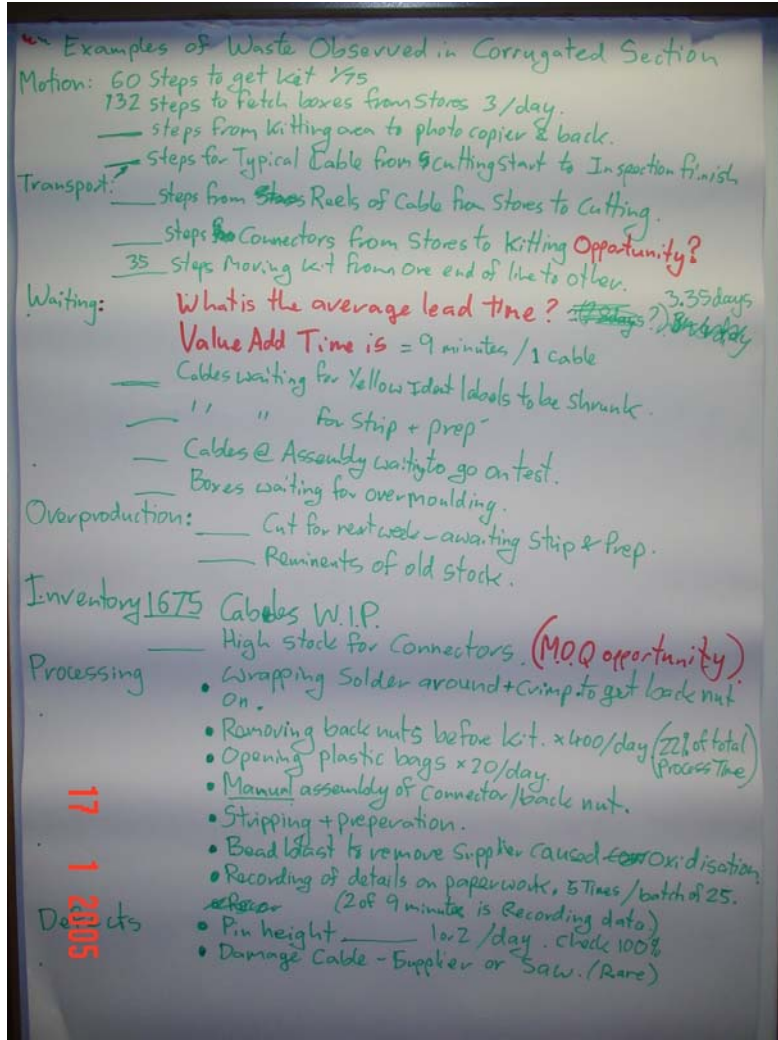 Examples of Waste Observed in Corrugated Section
Motion: 60 Steps to get kit 1/75
132 steps to fetch boxes from Stores 3/day.
___ steps from Kitting area to photo copier & back.
___ steps for Typical Cable from Cutting Start to Inspection finish
Transport: ___ steps from Reels of Cable from Stores to Cutting.
___ steps Connectors from Stores to Kitting Opportunity?
35 steps Moving kit from one end of line to other.
Waiting: What is the average lead time? 3.35 days
Value Add Time is = 9 minutes / 1 cable
___ Cables waiting for Yellow Ident labels to be shrunk.
___ " " for strip + prep
___ Cables @ Assembly waiting to go on test.
___ Boxes waiting for overmoulding.
Overproduction: ___ Cut for next week - awaiting Strip & Prep.
___ Reminents of old stock.
Inventory 1675 Cables W.I.P.
___ High stock for Connectors. (M.O.Q opportunity)
Processing • Wrapping Solder around + Crimp to get back nut
on.
• Removing back nuts before kit. x400/day (22% of total
Process Time)
• Opening plastic bags x20/day.
• Manual assembly of connector/back nut.
• Stripping + preperation.
• Bead blast to remove Supplier caused Oxidisation
• Recording of details on paperwork, 5 Times / batch of 25.
(2 of 9 minutes is Recording data)
Defects • Pin height ___ 1 or 2 /day. check 100%
• Damage Cable - Supplier or Saw. (Rare)
17 1 2005